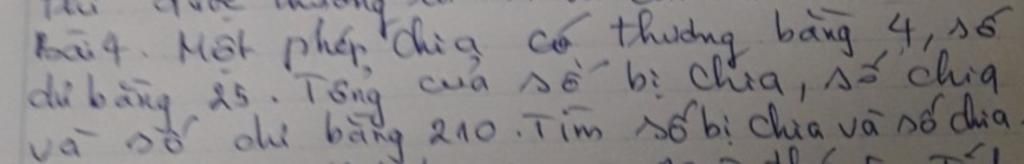 Bài 4. Một phép chia có thương bằng 4, số
dư bằng 25. Tổng của số bị chia, số chia
và số dư bằng 210. Tìm số bị chia và số chia.